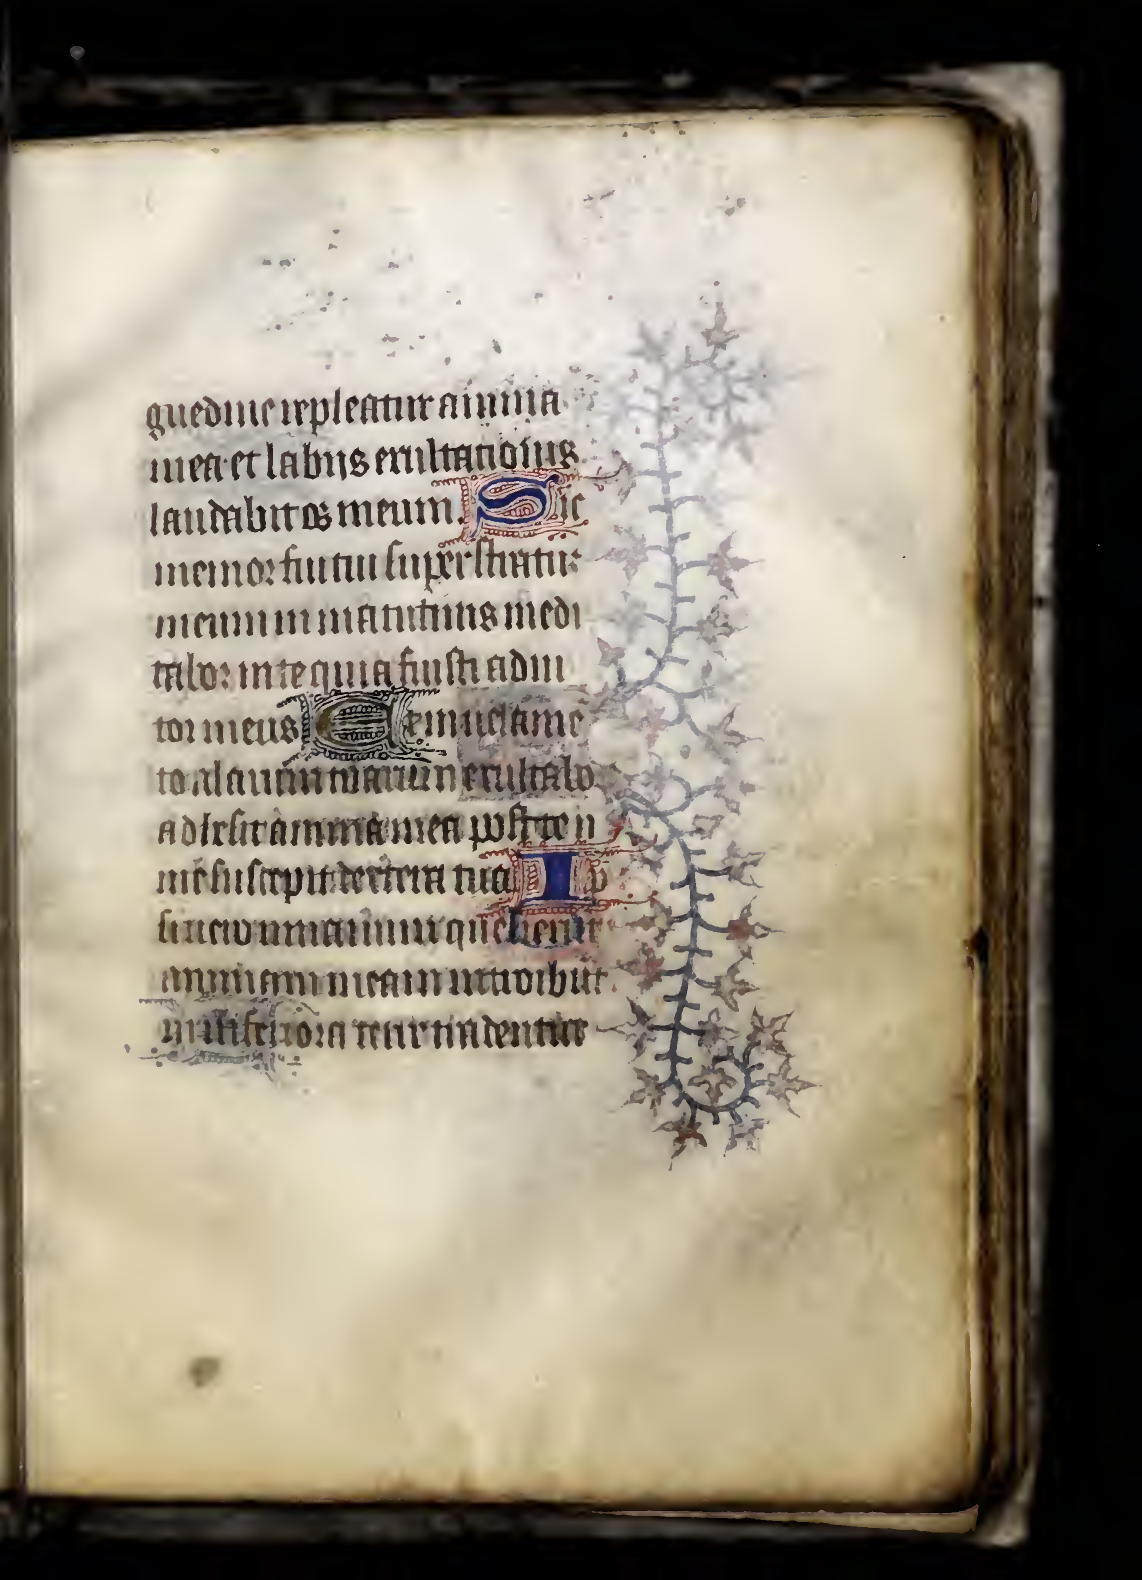 guedine repleatur anima
mea et labiis exultationis
laudabit os meum. Sic
memor fui tui super stratum
meum in matutinis medi
tabor in te quia fuisti adiu
tor meus Et in velame
to alarum tuarum exultabo
adhesit anima mea post te
me suscepit dextera tua Ip
si in vanum
animam meam introibunt
in inferiora terre tradentur